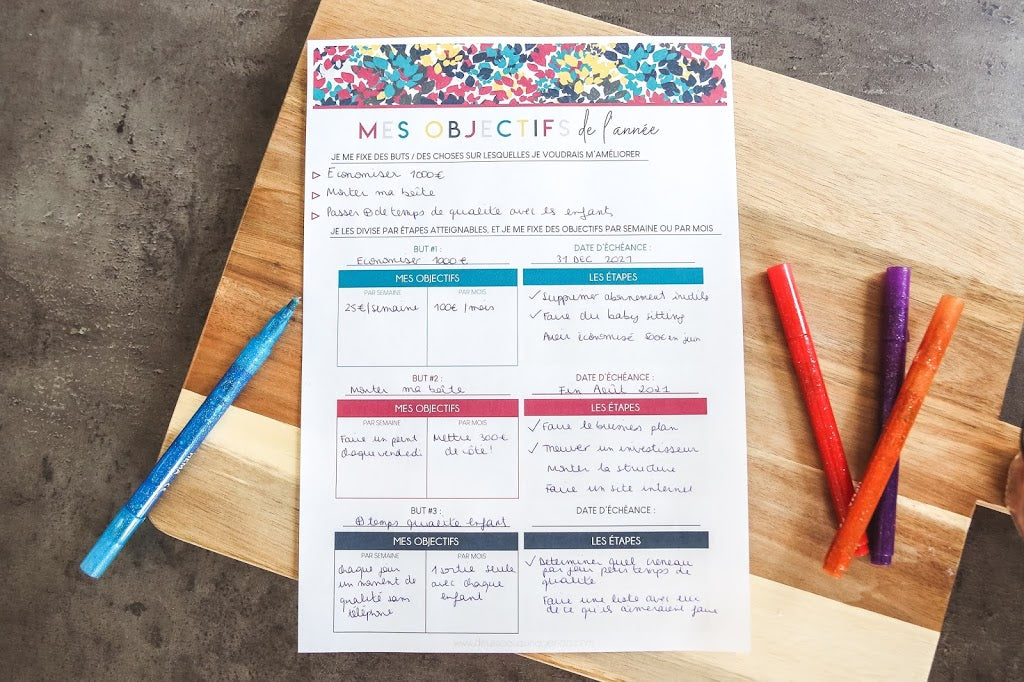 MES OBJECTIFS de l'année
JE ME FIXE DES BUTS / DES CHOSES SUR LESQUELLES JE VOUDRAIS M'AMÉLIORER
Economiser 1000€
Monter ma boîte
Passer ⊕ de temps de qualité avec les enfants
JE LES DIVISE PAR ÉTAPES ATTEIGNABLES, ET JE ME FIXE DES OBJECTIFS PAR SEMAINE OU PAR MOIS
BUT #1 :
Economiser 1000€
DATE D'ÉCHÉANCE :
31 DEC 2021
MES OBJECTIFS
PAR SEMAINE
25€/semaine
PAR MOIS
100€ /mois
LES ÉTAPES
✓ Supprimer abonnement inutile
✓ Faire du baby sitting
Avoir économisé 500€ en juin
BUT #2 :
Monter ma boîte
DATE D'ÉCHÉANCE :
Fin Août 2021
MES OBJECTIFS
PAR SEMAINE
Faire un point
chaque vendredi
PAR MOIS
Mettre 300€
de côté!
LES ÉTAPES
✓ Faire le business plan
✓ Trouver un investisseur
Monter la structure
Faire un site internet
BUT #3 :
⊕ temps qualité enfant
DATE D'ÉCHÉANCE :
MES OBJECTIFS
PAR SEMAINE
chaque jour
un moment de
qualité sans
téléphone
PAR MOIS
1 sortie seule
avec chaque
enfant
LES ÉTAPES
✓ Determiner quel creneau
par jour petit temps de
qualité
Faire une liste avec eux
de ce qu'ils aimeraient faire